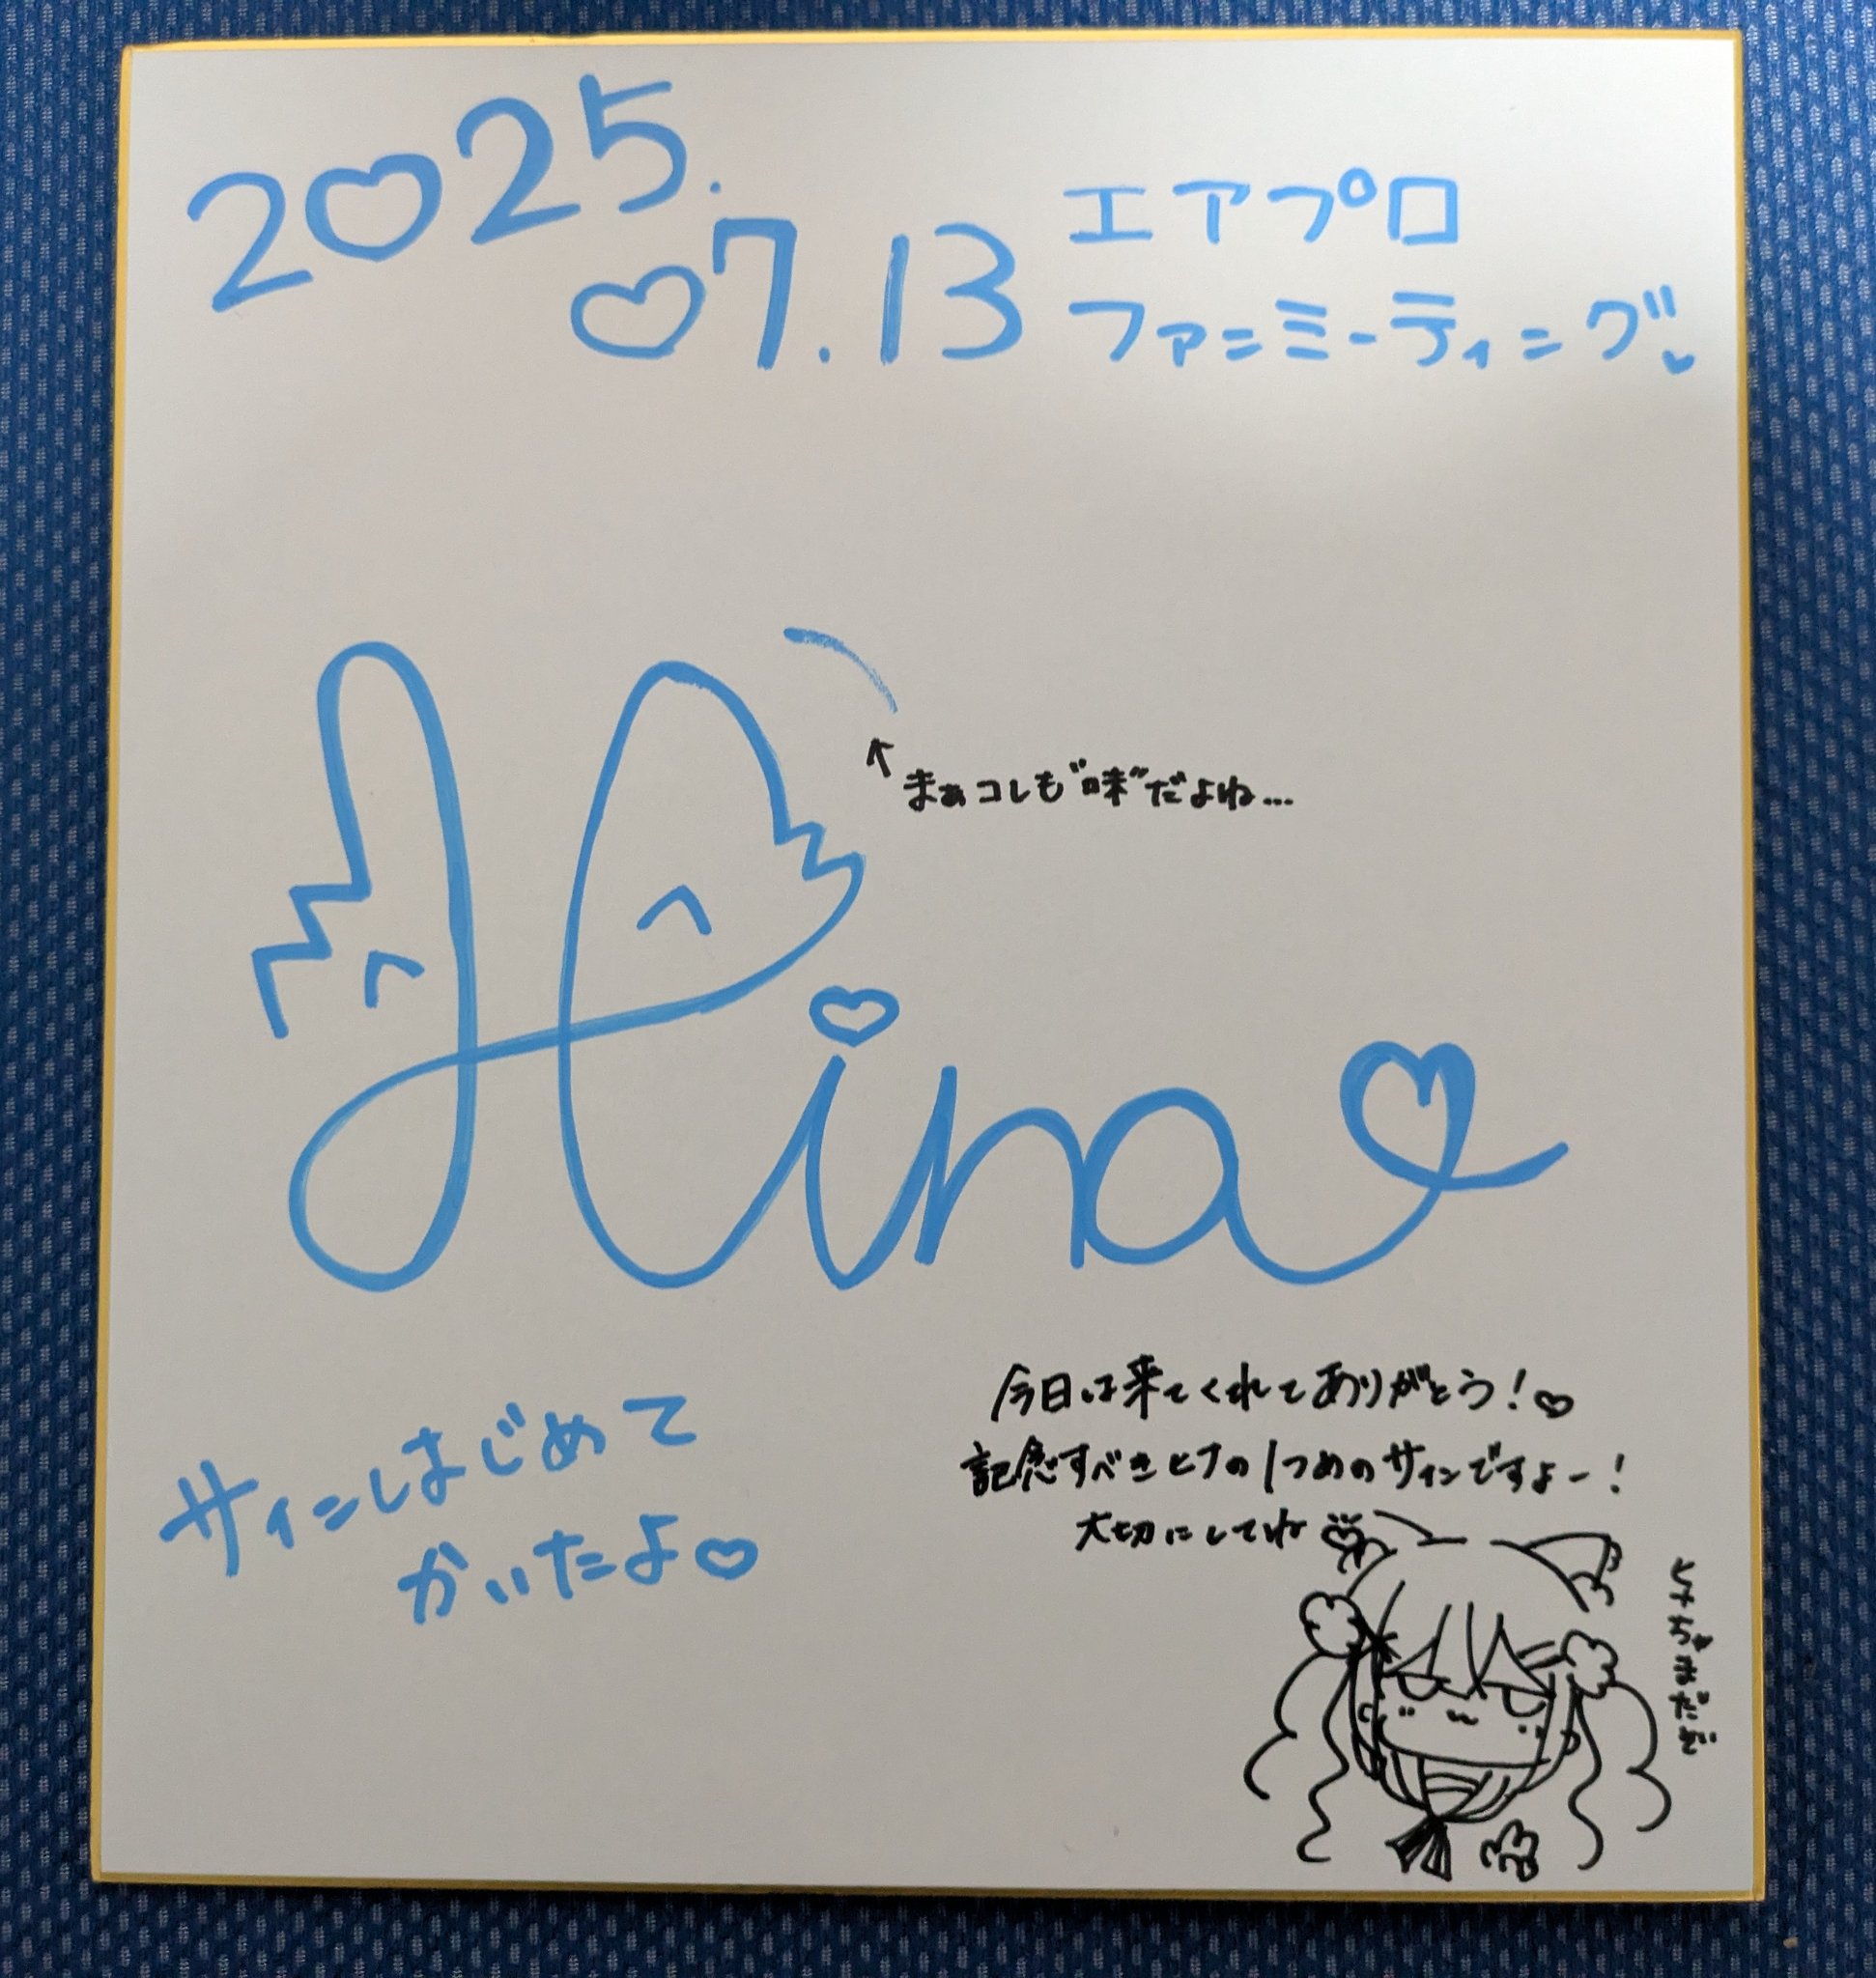 2025.
07.13
エアプロ
ファンミーティング
↑まぁコレも"味"だよね...
Hina
サインはじめて
かいたよ♡
今日は来てくれてありがとう！♡
記念すべきヒナの1つめのサインですよー！
大切にしてね
ヒナちゃまだぞ